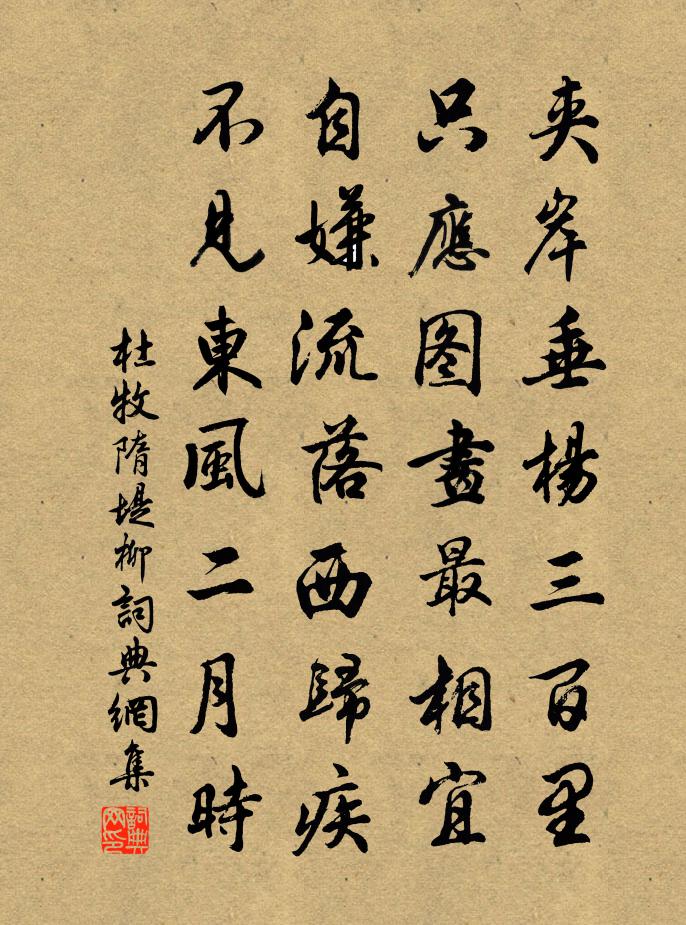 夹岸垂楊三百里
只應图畫最相宜
自嫌流落西歸疾
不見東風二月時
杜牧隋堤柳詞典網集
詞典网印